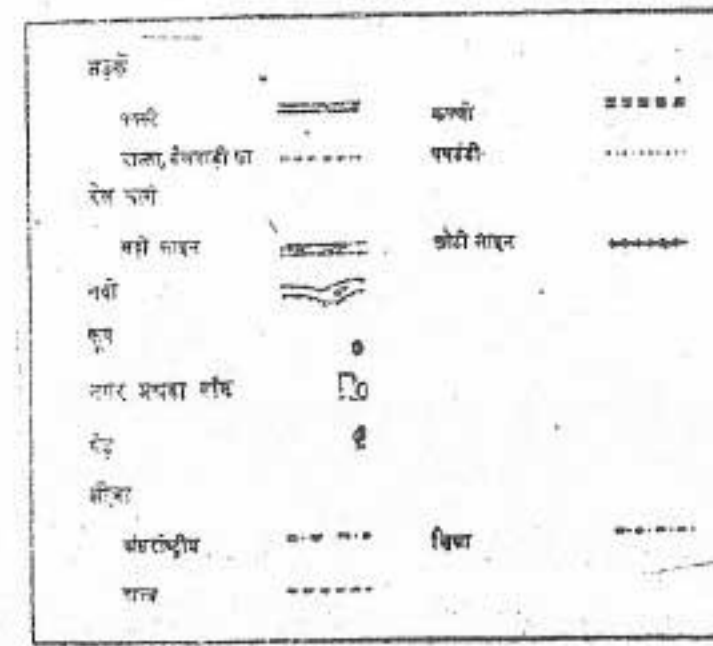 सड़कें
पक्की कच्ची
रास्ता, बैलगाड़ी का पगडंडी
रेल मार्ग
बड़ी लाइन छोटी लाइन
नदी
कूप
नगर अथवा गाँव
पेड़
सीमा
अंतर्राष्ट्रीय जिला
राज्य